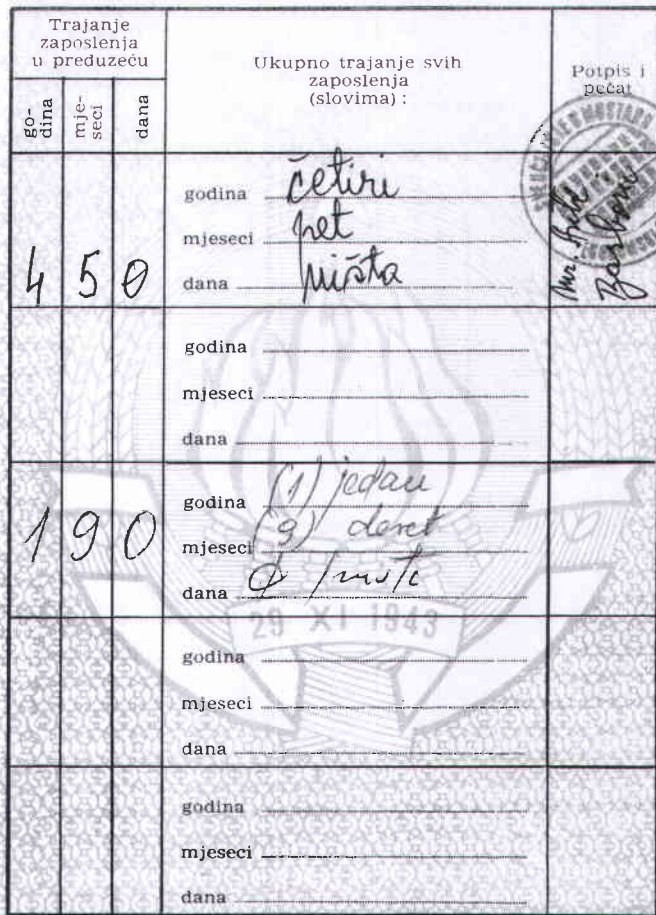 Trajanje
zaposlenja
u preduzeću
go-
dina
mje-
seci
dana
Ukupno trajanje svih
zaposlenja
(slovima):
Potpis i
pečat
4 5 0
godina četiri
mjeseci pet
dana ništa
godina
mjeseci
dana
1 9 0
godina (1) jedan
mjeseci (9) devet
dana 0
29 XI 1943
godina
mjeseci
dana
godina
mjeseci
dana